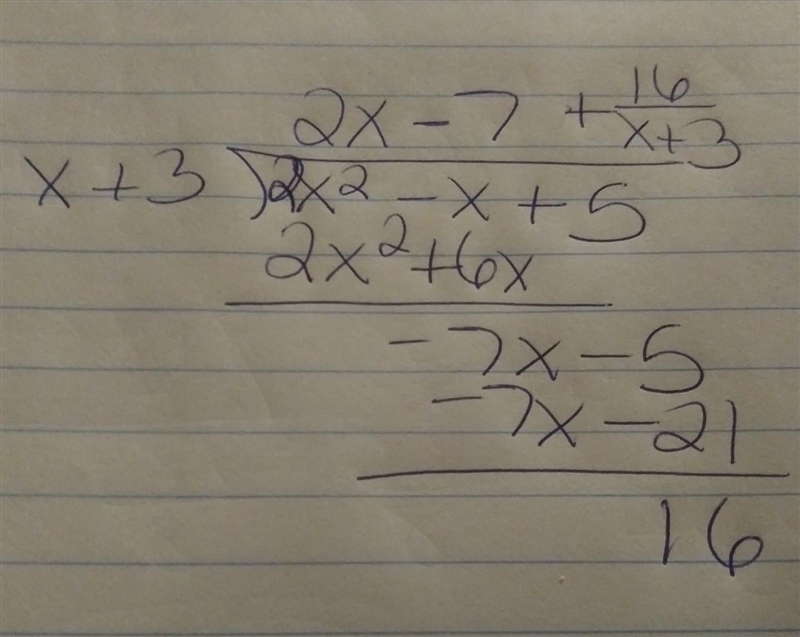 2x - 7 + 16/(x+3)
x + 3 ) 2x² - x + 5
2x² + 6x
-7x - 5
-7x - 21
16